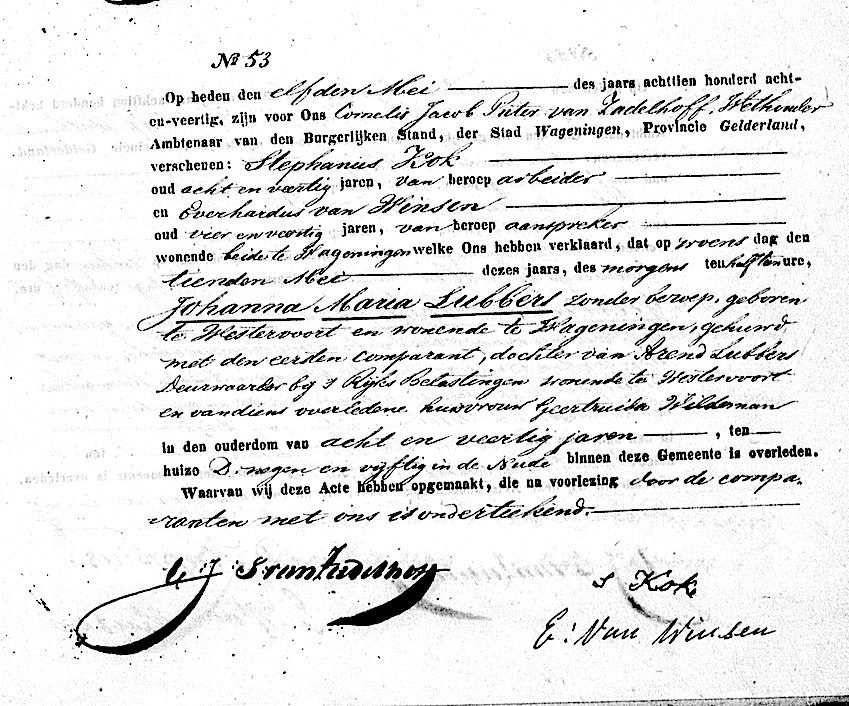 № 53
Op heden den elfden Mei des jaars achttien honderd acht-
en-veertig, zijn voor Ons Cornelis Jacob Pieter van Zadelhoff, Wethouder
Ambtenaar van den Burgerlijken Stand, der Stad Wageningen, Provincie Gelderland,
verschenen: Stephanus Kok
oud acht en veertig jaren, van beroep arbeider
en Everhardus van Winsen
oud vier en veertig jaren, van beroep aanspreker
wonende beide te Wageningen welke Ons hebben verklaard, dat op woens dag den
tienden Mei dezes jaars, des morgens ten half tien ure,
Johanna Maria Lubbers zonder beroep, geboren
te Westervoort en wonende te Wageningen, gehuwd
met den eersten comparant, dochter van Arend Lubbers
Deurwaarder bij 's Rijks Belastingen wonende te Westervoort
en van diens overledene huisvrouw Geertruida Wildeman
in den ouderdom van acht en veertig jaren, ten
huize D. negen en vijftig in de Nude binnen deze Gemeente is overleden.
Waarvan wij deze Acte hebben opgemaakt, die na voorlezing door de compa-
ranten met ons is onderteekend.
C J P van Zadelhoff
S Kok
E: Van Winsen